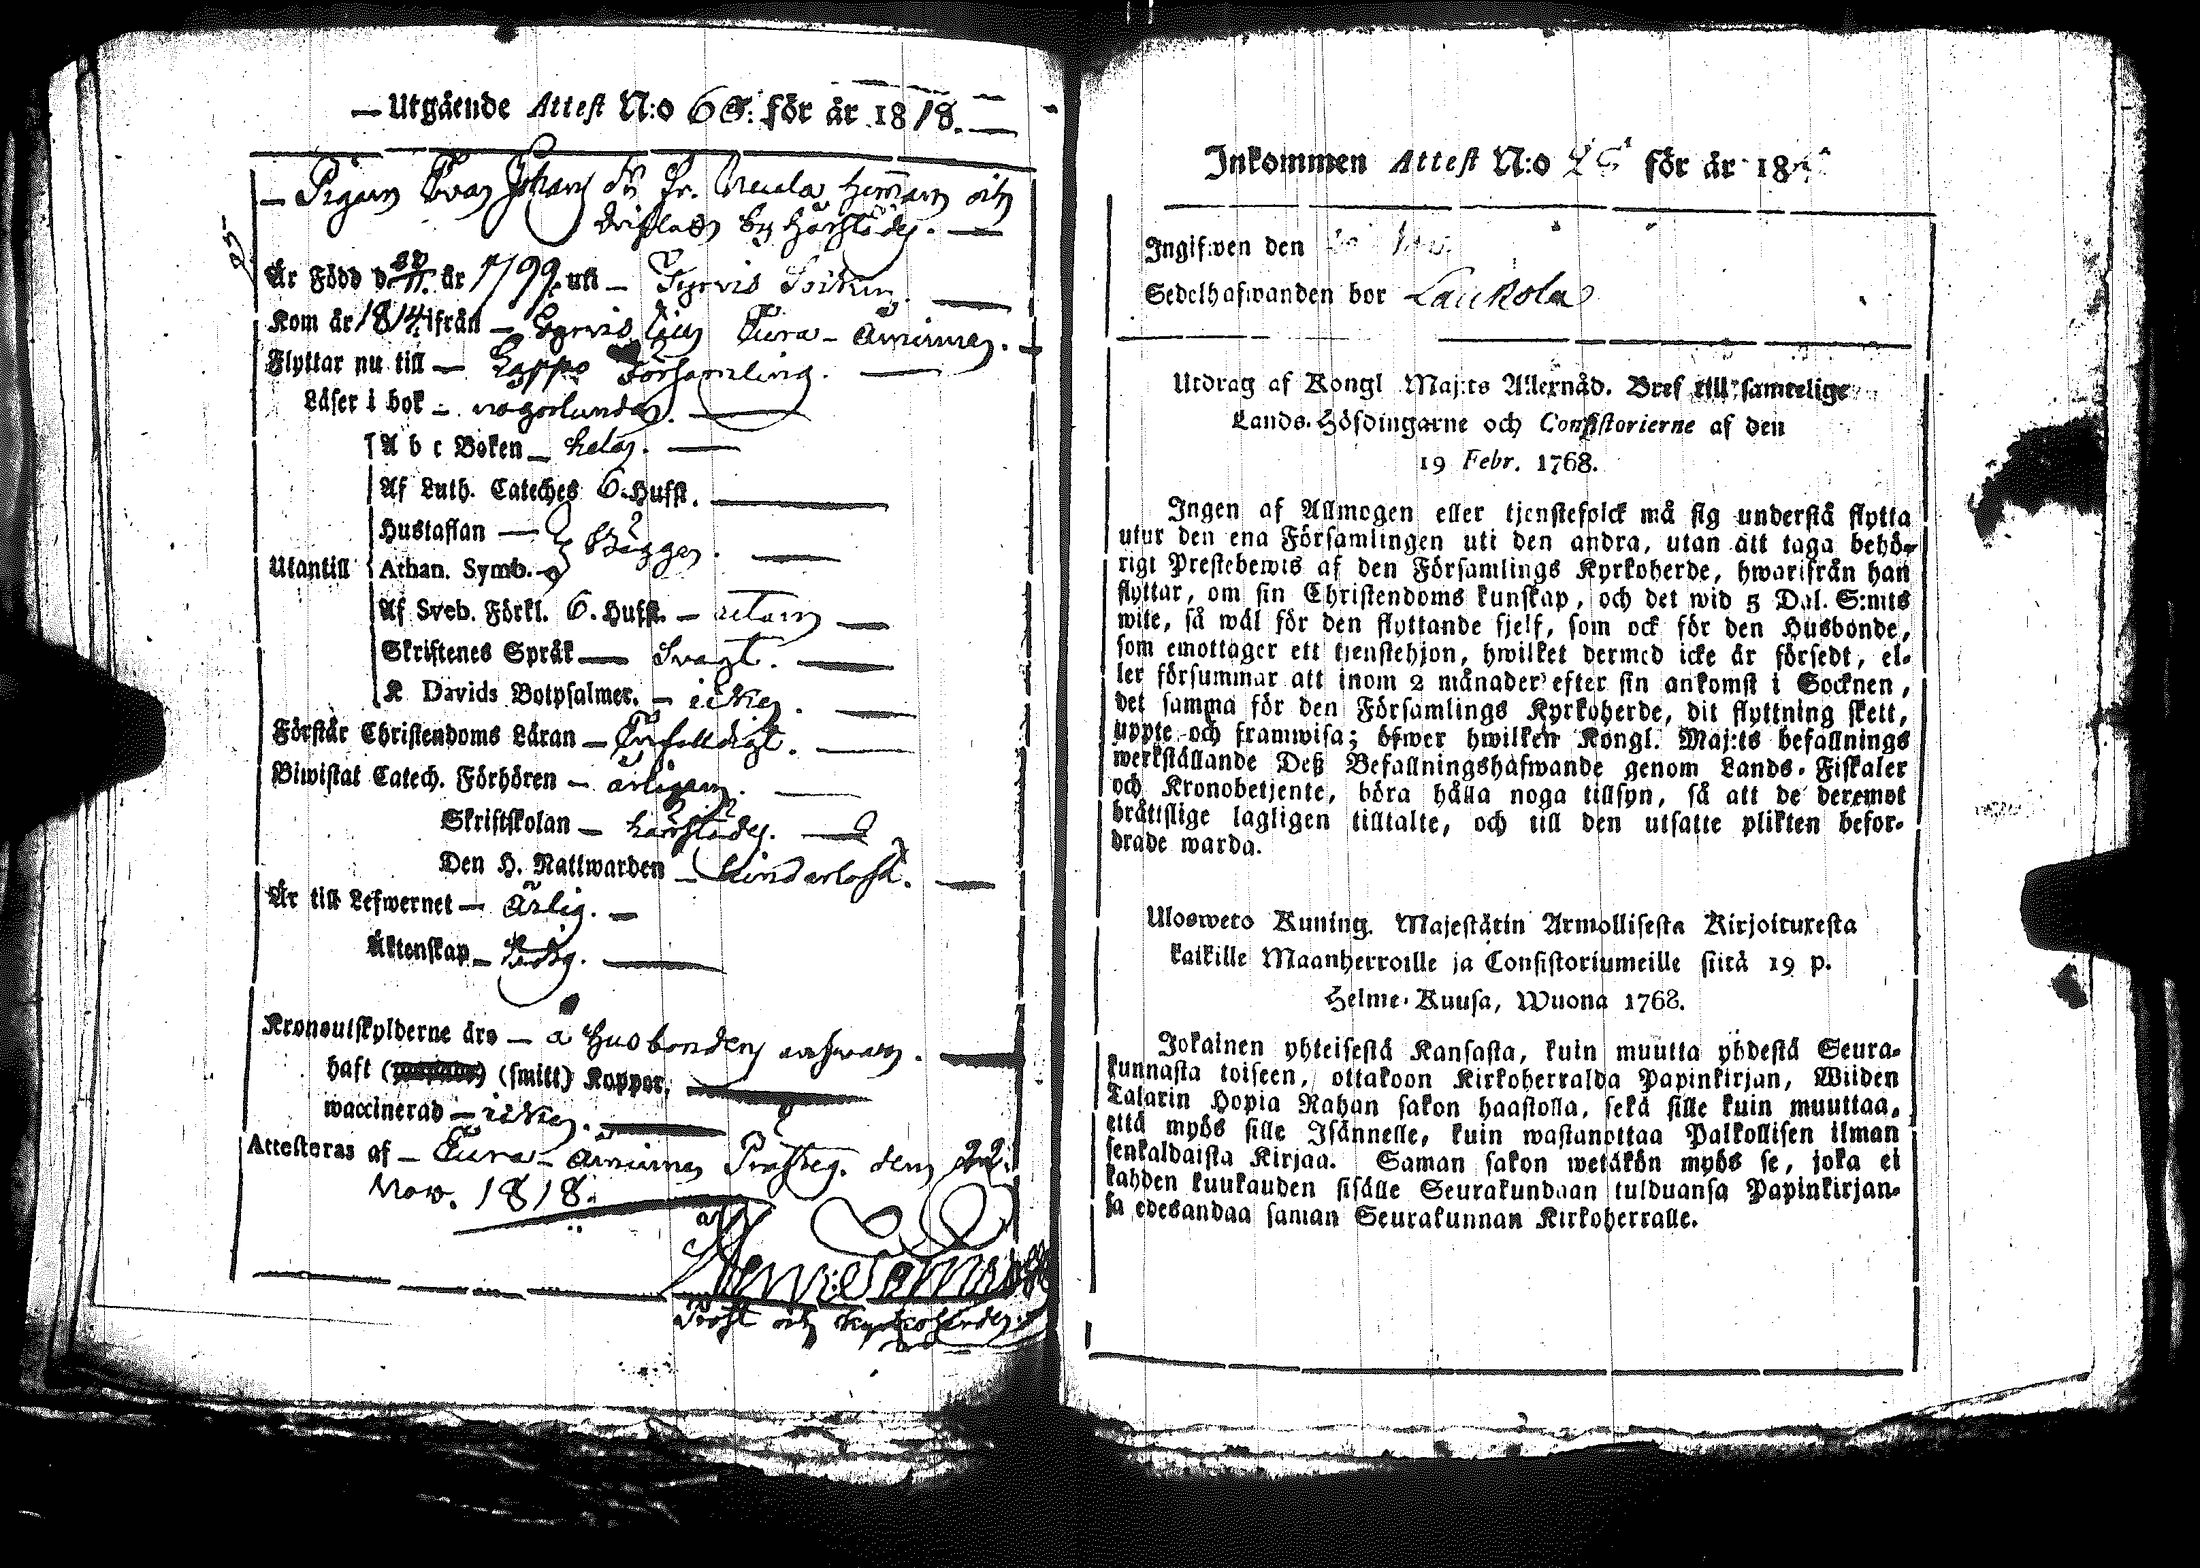 Utgående Attest N:o 66: för år 1818.
Pigan Eva Johans dr fr. Neula hemman och
by härstädes.
Är Född d. 11. år 1799. uti
Kom år 1814 ifrån Eura-Åminne.
Flyttar nu till Lappo Församling.
Läser i bok någorlunda.
A b c Boken hela.
Af Luth. Cateches 6. Hufst.
Hustaflan
Bägge.
Utantill
Athan. Symb.
Af Sveb. Förkl. 6. Hufst. utan
Skriftenes Språk Svagt.
K Davids Botpsalmer. icke.
Förstår Christendoms Läran Enfalldigt.
Biwistat Catech. Förhören årligen.
Skriftskolan härstädes.
Den H. Nattwarden hindarlöst.
Är till Lefwernet Ärlig.
Äktenskap Ledig.
Kronoutskylderne äro å Husbondens answar.
haft (smitt) Koppor,
waccinerad icke.
Attesteras af Eura-Åminne Prästeg. den 22.
Nov. 1818.
Prost och Kyrkoherde.
Inkommen Attest N:o för år 18
Ingifwen den
Sedelhafwanden bor Laukola
Utdrag af Kongl Maj:ts Allernåd. Bref till samtelige
Lands-Höfdingarne och Consistorierne af den
19 Febr. 1768.
Ingen af Allmogen eller tjenstefolck må sig understå flytta
utur den ena Församlingen uti den andra, utan att taga behö-
rigt Prestebewis af den Församlings Kyrkoherde, hwarifrån han
flyttar, om sin Christendoms kunskap, och det wid 5 Dal. S:mts
wite, så wäl för den flyttande sjelf, som ock för den Husbonde,
som emottager ett tjenstehjon, hwilket dermed icke är försedt, el-
ler försummar att inom 2 månader efter sin ankomst i Socknen,
det samma för den Församlings Kyrkoherde, dit flyttning skett,
uppte och framwisa; öfwer hwilken Kongl. Maj:ts befallnings
werkställande Deß Befallningshafwande genom Lands-Fiskaler
och Kronobetjente, böra hålla noga tillsyn, så att de deremot
bråttslige lagligen tilltalte, och till den utsatte plikten befor-
drade warda.
Ulosweto Kuning. Majestätin Armollisesta Kirjoituxesta
kaikille Maanherroille ja Consistoriumeille siitä 19 p.
Helme-Kuusa, Wuona 1768.
Jokainen yhteisestä Kansasta, kuin muutta yhdestä Seura-
kunnasta toiseen, ottakoon Kirkoherralda Papinkirjan, Wiiden
Talarin Hopia Rahan sakon haastolla, sekä sille kuin muuttaa,
että myös sille Isännelle, kuin wastanottaa Palkollisen ilman
senkaldaista Kirjaa. Saman sakon wetäkön myös se, joka ei
kahden kuukauden sisälle Seurakundaan tulduansa Papinkirjan-
sa edesandaa saman Seurakunnan Kirkoherralle.